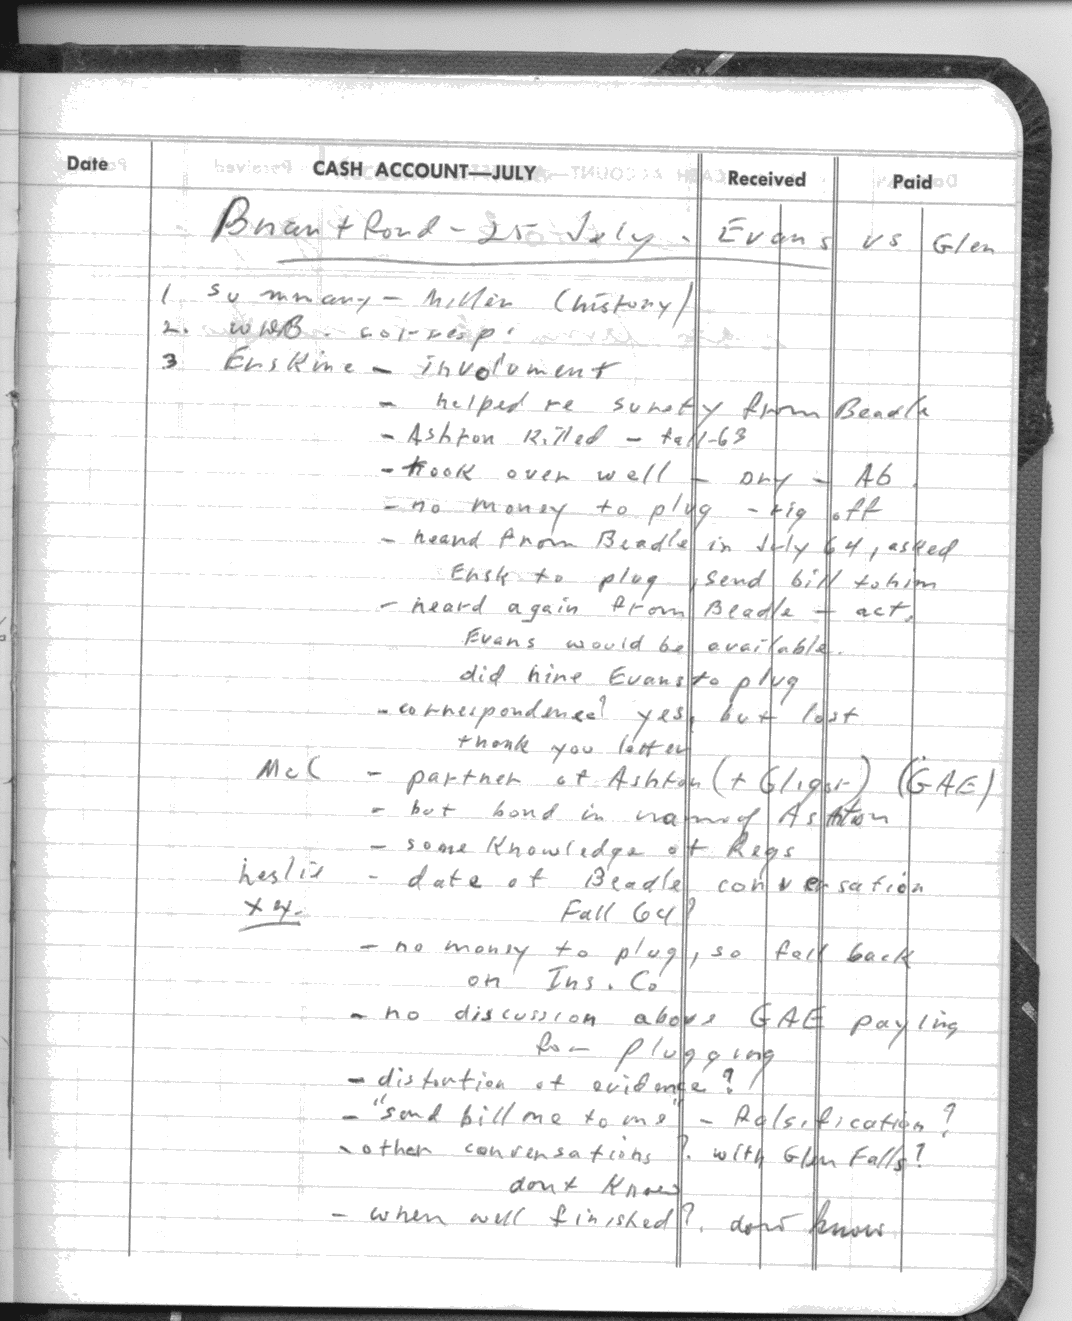 Date CASH ACCOUNT—JULY Received Paid
Brantford - 25 July - Evans vs Glen
1. summary - Miller (history)
2. WDB. corresp.
3 Erskine - involvment
- helped re surety from Beadle
- Ashton Killed - fall-63
- took over well - Dry - Ab.
- no money to plug - rig off
- heard from Beadle in July 64, asked
Ersk to plug, send bill to him
- heard again from Beadle - act.
Evans would be available.
did hire Evans to plug
- correspondence? yes, but lost
thank you letter
McC - partner of Ashton (+ Gligor) (GAE)
- but bond in name of Ashton
- some Knowledge of Regs
Leslie - date of Beadle conversation
x ex. Fall 64?
- no money to plug, so fall back
on Ins. Co
- no discussion above GAE paying
for plugging
- distortion of evidence?
- "send bill me to me" - Falsification?
- other conversations? with Glen Falls?
dont Know
- when well finished? dont know